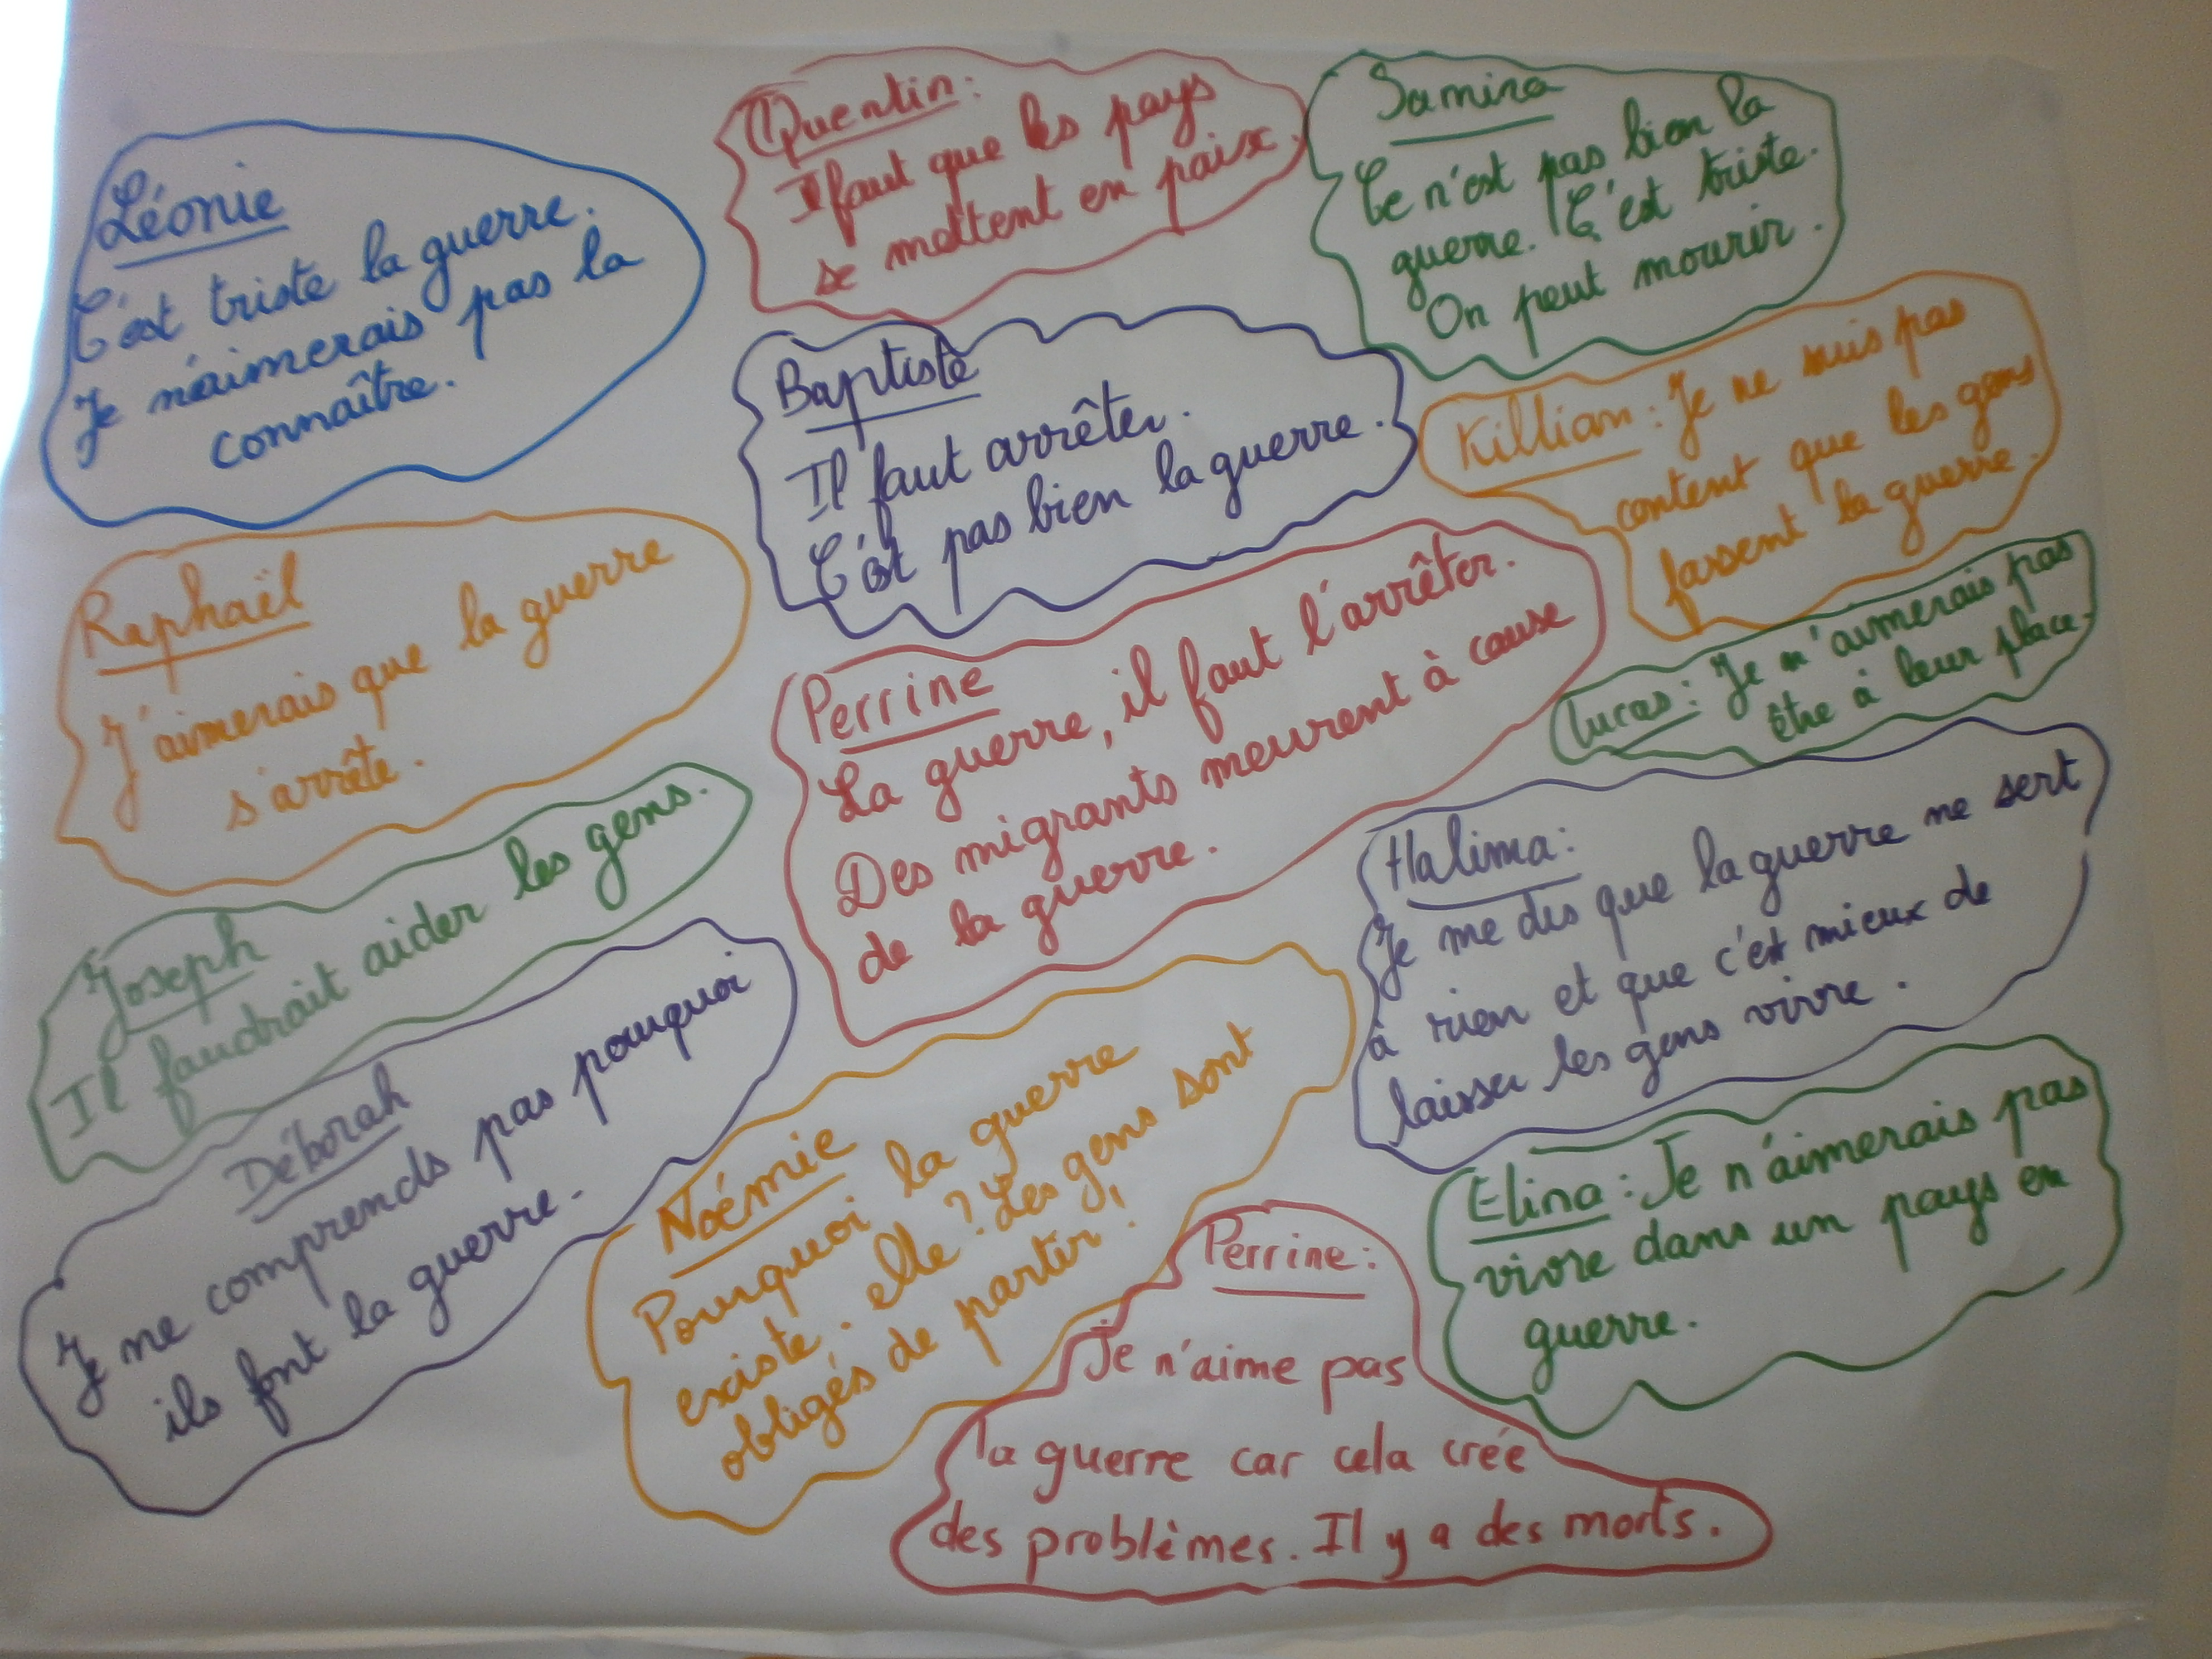 Léonie
C'est triste la guerre.
Je n'aimerais pas la
connaître.
Quentin:
Il faut que les pays
se mettent en paix.
Samina
Ce n'est pas bien la
guerre. C'est triste.
On peut mourir.
Baptiste
Il faut arrêter.
C'est pas bien la guerre.
Killian : Je ne suis pas
content que les gens
fassent la guerre.
Raphaël
J'aimerais que la guerre
s'arrête.
Perrine
La guerre, il faut l'arrêter.
Des migrants meurent à cause
de la guerre.
Lucas : Je n'aimerais pas
être à leur place.
Joseph
Il faudrait aider les gens.
Halima:
Je me dis que la guerre ne sert
à rien et que c'est mieux de
laisser les gens vivre.
Déborah
Je ne comprends pas pourquoi
ils font la guerre.
Noémie
Pourquoi la guerre
existe-elle ? Les gens sont
obligés de partir !
Elina : Je n'aimerais pas
vivre dans un pays en
guerre.
Perrine:
Je n'aime pas
la guerre car cela crée
des problèmes. Il y a des morts.